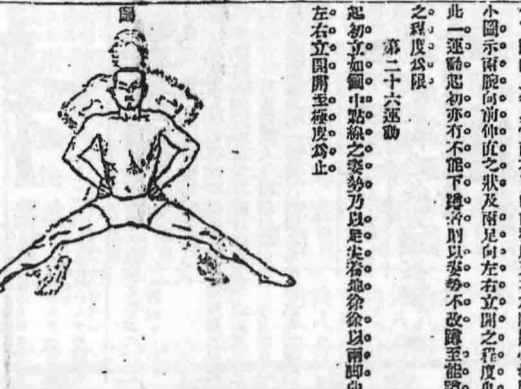 小圖示兩腕向前伸直之狀及兩足向左右立開之程度
此一運動起初亦有不能下蹲者則以姿勢不改蹲至能蹲
之程度爲限
第二十六運動
起初立如圖中點線之姿勢乃以足尖着地徐徐以兩脚向
左右立開開至極度爲止
圖